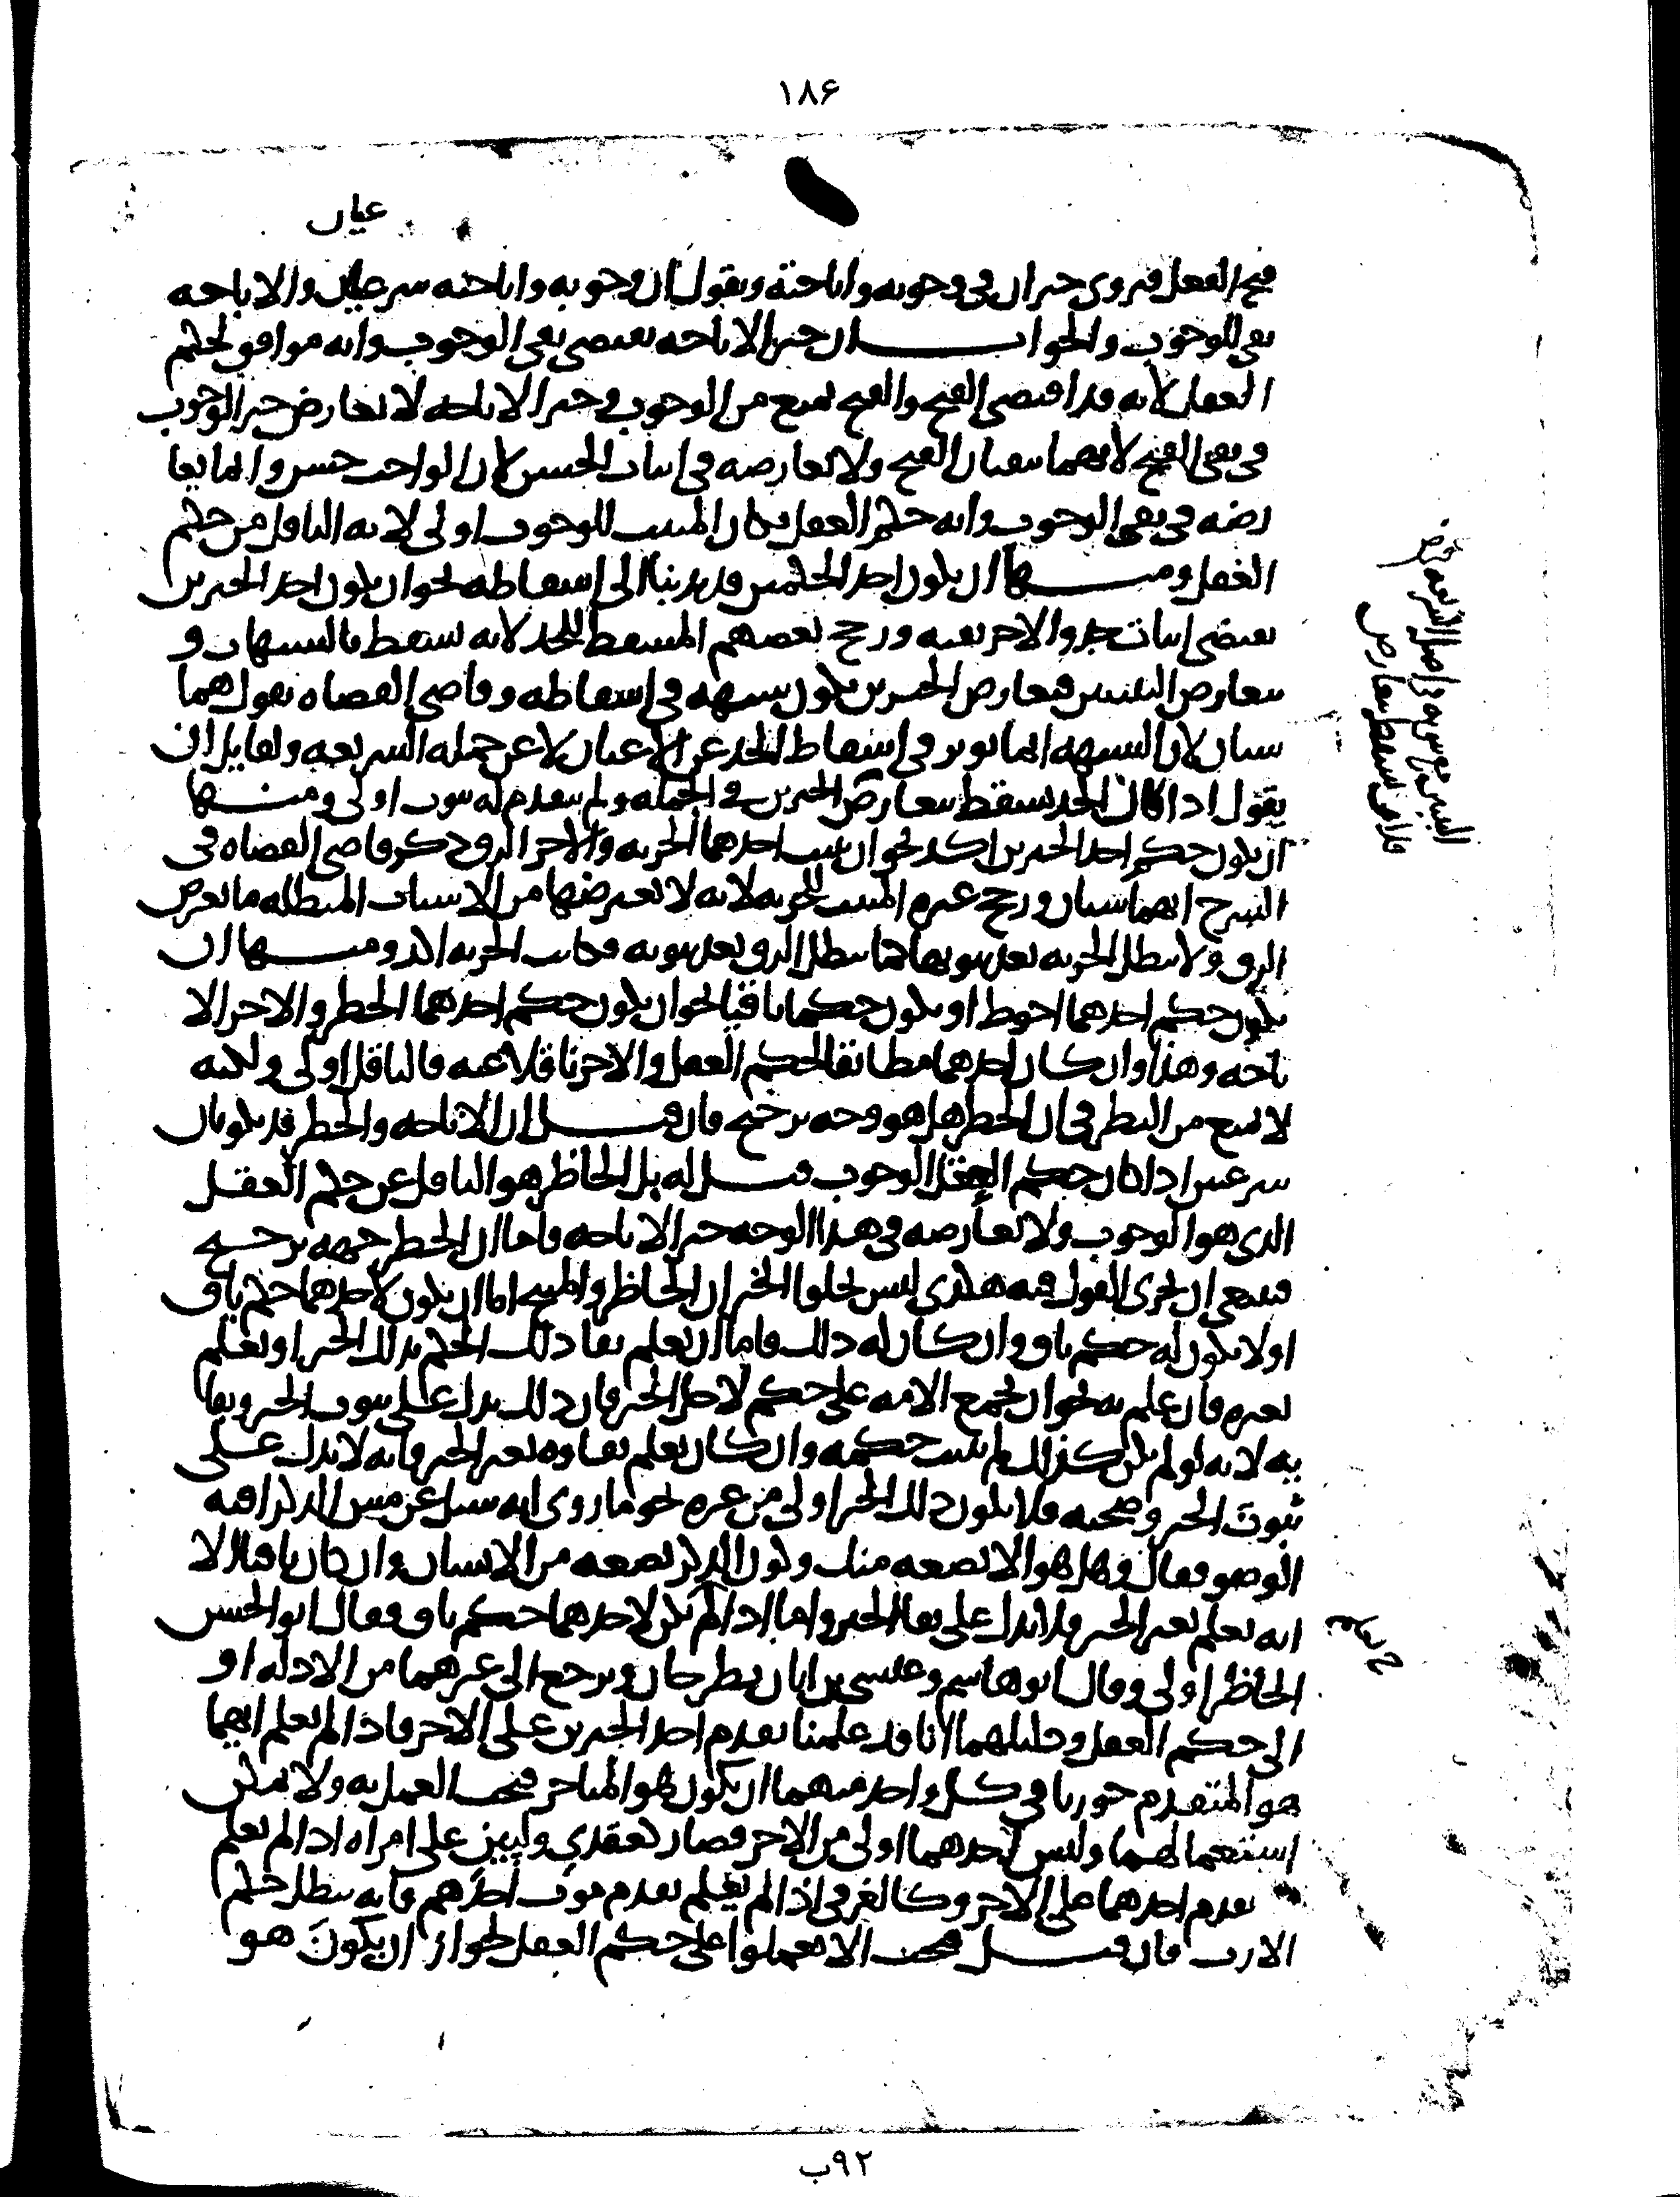 ١٨۶
عيان
قبح الفعل فيروى خبران في وجوبه واباحته ويقول ان وجوبه واباحته شرعيان والاباحه
نفي للوجوب والجواب ان خبر الاباحه يقتضي نفي الوجوب وانه موافق لحكم
العقل لانه قد اقتضى القبح والقبح يمنع من الوجوب وخبر الاباحه لا يعارض خبر الوجوب
في نفي القبح لانهما ينفيان القبح ولا يعارضه في اثبات الحسن لان الواجب حسن وانما يعا
رضه في نفي الوجوب وانه حكم العقل فكان المثبت للوجوب اولى لانه الناقل من حكم
العقل ومنها ان يكون احد الحكمين قد ندبنا الى اسقاطه نحو ان يكون احد الخبرين
يقتضي اثبات حد والاخر نفيه ورجح بعضهم المسقط للحد لانه يسقط بالشبهات و
بتعارض البينتين فتعارض الخبرين يكون شبهه في اسقاطه وقاضي القضاه يقول هما
سيان لان الشبهه انما توثر في اسقاط الحد عن الاعيان لا عن جمله الشريعه ولقايل ان
يقول اذا كان الحد يسقط بتعارض الخبرين في الجمله ولم يتقدم له ثبوت اولى ومنها
ان يكون حكم احد الخبرين اكد نحو ان يثبت احدهما الحريه والاخر الرق ذكر قاضي القضاه في
الشرح انهما سيان ورجح غيره المثبت للحريه لانه لا يعترضها من الاسباب المبطله ما يعرض
الرق ولا يبطل الحريه بعد ثبوتها كما يبطل الرق بعد ثبوته فكانت الحريه اكد ومنها ان
يكون حكم احدهما احوط او يكون حكما باقيا نحو ان يكون حكم احدهما الحظر والاخر الا
باحه وهذا وان كان احدهما مطابقا لحكم العقل والاخر ناقلا عنه فالناقل اولى ولكنه
لا يمنع من النظر في ان الحظر هل هو وجه ترجيح فان قيل ان الاباحه والحظر قد يكونان
شرعيين اذا كان حكم العقل الوجوب قيل له بل الحاظر هو الناقل عن حكم العقل
الذي هو الوجوب ولا يعارضه في هذا الوجه خبر الاباحه واما ان الحظر جهه ترجيح
فينبغي ان يجرى القول فيه هكذى ليس يخلوا الخبران الحاظر والمبيح اما ان يكون لاحدهما حكم باق
اولا يكون له حكم باق وان كان له ذلك فاما ان يعلم بقا ذلك الحكم بذلك الخبر او يعلم
بغيره فان علم به نحو ان تجمع الامه على حكم لاجل الخبر فان ذلك يدل على ثبوت الخبر وبقا
يه لانه لو لم يكن كذلك لم يثبت حكمه وان كان يعلم بقاوه بغير الخبر فانه لا يدل على
ثبوت الخبر وصحته فلا يكون ذلك الخبر اولى من غيره نحو ما روى انه سيل عن مس الذكر افيه
الوضو فقال وهل هو الا بضعه منك وكون الذكر بضعه من الانسان وان كان باقيا الا
انه يعلم بغير الخبر فلا يدل على بقا الخبر واما اذا لم يكن لاحدهما حكم باق فقال ابو الحسن
الحاظر اولى وقال ابو هاشم وعيسى بن ابان يطرحان ويرجع الى غيرهما من الادله او
الى حكم العقل ودليلهما انا قد علمنا تقدم احد الخبرين على الاخر فاذا لم يعلم ايهما
هو المتقدم جوزنا في كل واحد منهما ان يكون هو المتاخر فيجب العمل به ولا يمكن
استعمالهما وليس احدهما اولى من الاخر فصار كعقدي وليين على امراه اذا لم يعلم
تقدم احدهما على الاخر وكالغرقى اذا لم يعلم تقدم موت احدهم فانه يبطل حكم
الارث فان قيل فيجب الا تعملوا على حكم العقل لجواز ان يكون هو
٩٢ب